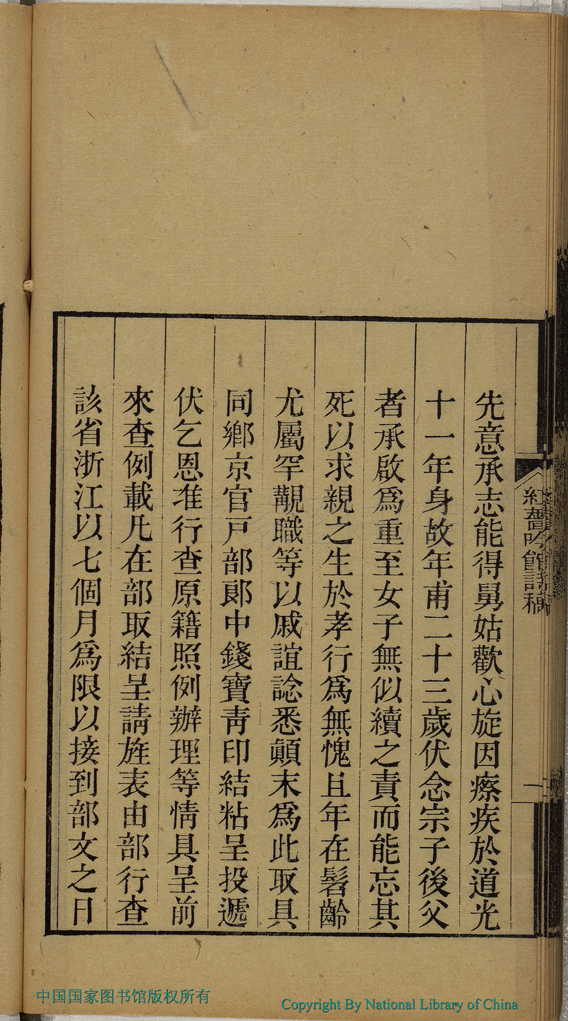 先意承志能得舅姑歡心旋因瘵疾於道光
十一年身故年甫二十三歲伏念宗子後父
者承啟爲重至女子無似續之責而能忘其
死以求親之生於孝行爲無愧且年在髫齡
尤屬罕覯職等以戚誼諗悉顛末爲此取具
同鄉京官戸部郎中錢寶靑印結粘呈投遞
伏乞恩准行查原籍照例辦理等情具呈前
來查例載凡在部取結呈請旌表由部行查
該省浙江以七個月爲限以接到部文之日
吟館詩稿
中国国家图书馆版权所有
Copyright By National Library of China